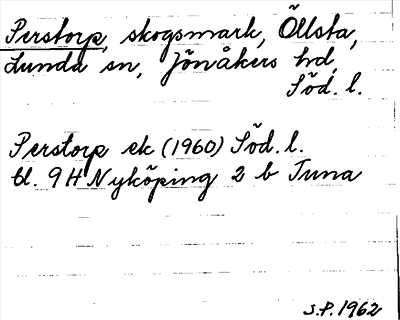 Perstorp, skogsmark, Öllsta,
Lunda sn, Jönåkers hd,
Söd. l.
Perstorp ek (1960) Söd. l.
bl. 9 H Nyköping 2 b Tuna
S.P. 1962